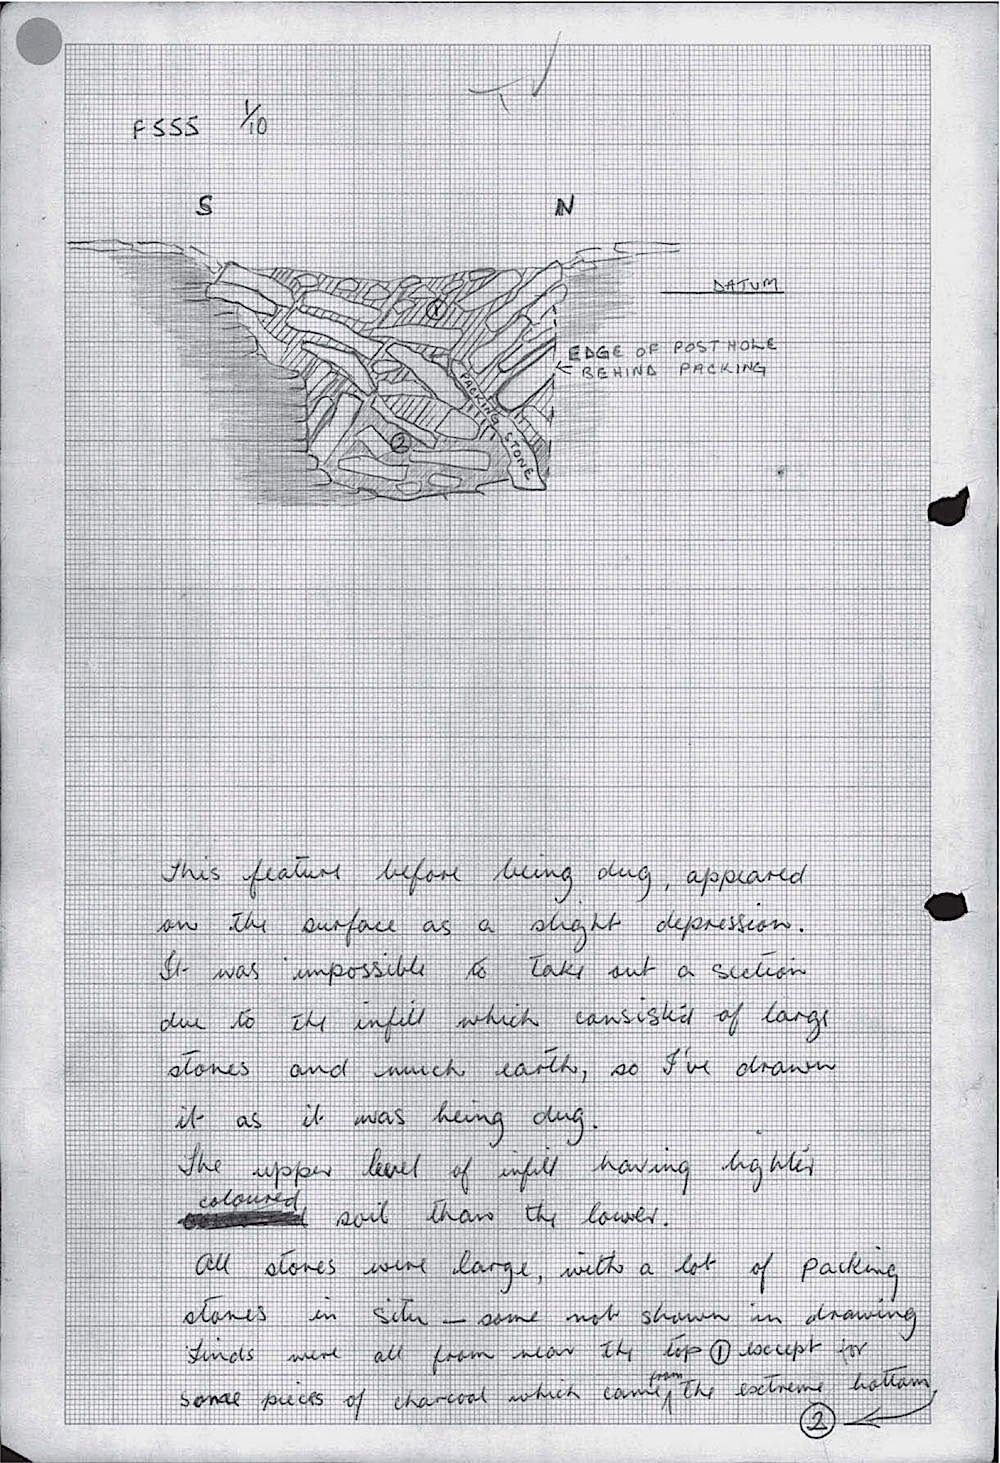 F555 1/10
S N
DATUM
①
EDGE OF POST HOLE
BEHIND PACKING
PACKING STONE
②
This feature before being dug, appeared
on the surface as a slight depression.
It was impossible to take out a section
due to the infill which consisted of large
stones and much earth, so I've drawn
it as it was being dug.
The upper level of infill having lighter
coloured soil than the lower.
All stones were large, with a lot of packing
stones in situ – some not shown in drawing
Finds were all from near the top ① except for
some pieces of charcoal which came from the extreme bottom,
②